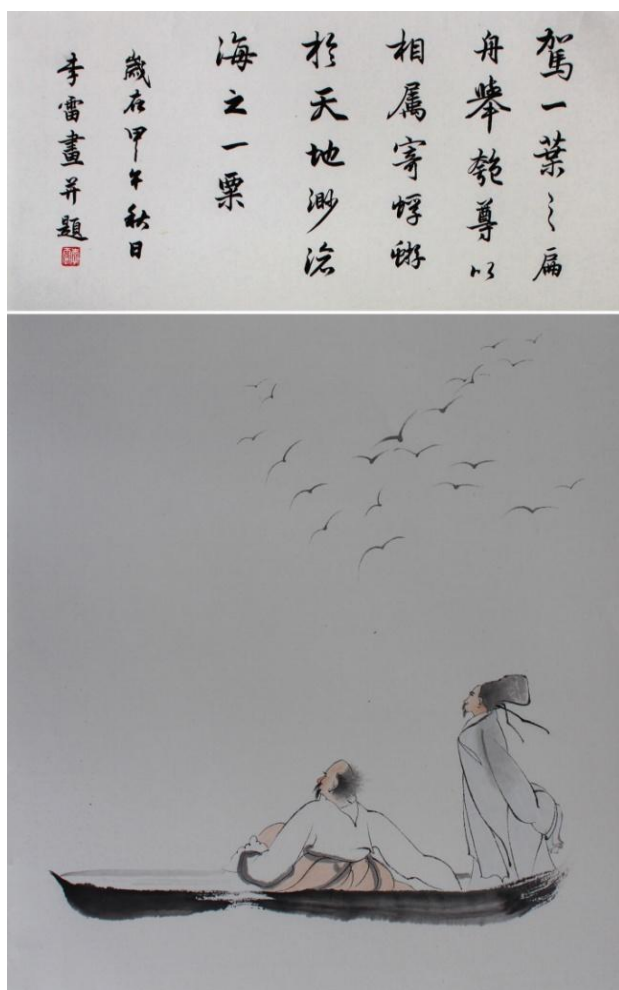 駕一葉之扁
舟舉匏尊以
相属寄蜉蝣
於天地渺滄
海之一粟
歲在甲午秋日
李雷畫并題